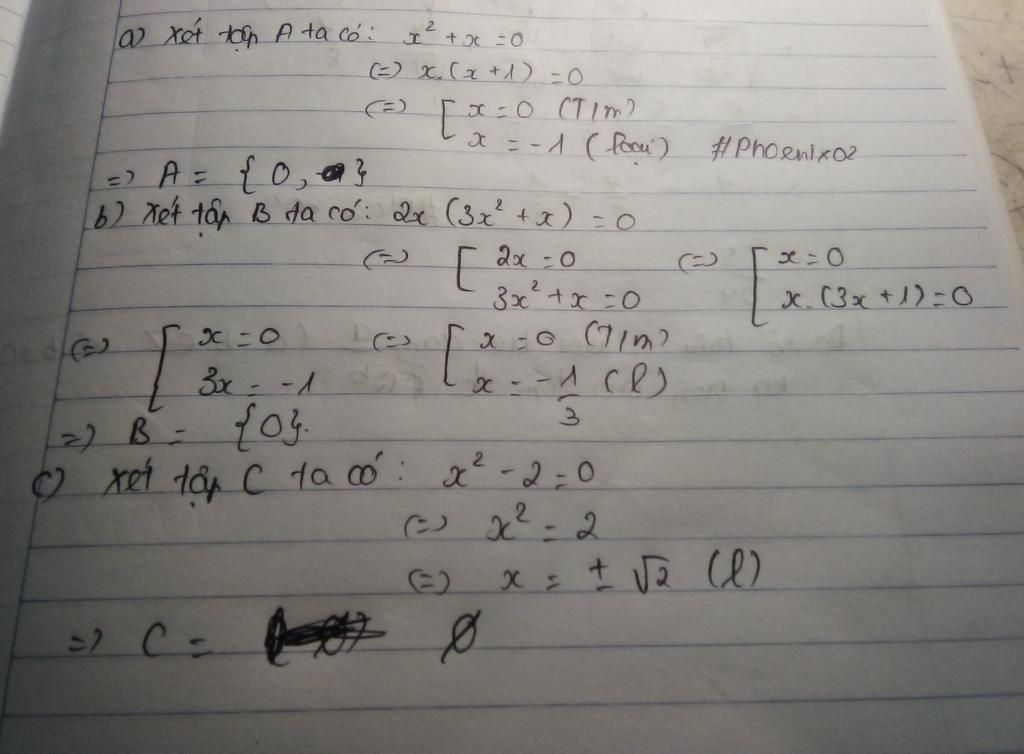 a) xét tập A ta có: x² + x = 0
(=) x.(x+1) = 0
(=) [ x = 0 (T/m)
x = -1 (loại) #Phoenix02
=) A = {0, }
b) xét tập B ta có: 2x (3x² + x) = 0
(=) [ 2x = 0 (=) [ x = 0
3x² + x = 0 x.(3x+1) = 0
(=) [ x = 0 (=) [ x = 0 (T/m)
3x = -1 x = -1/3 (l)
=) B = {0}.
c) xét tập C ta có: x² - 2 = 0
(=) x² = 2
(=) x = ± √2 (l)
=) C = ∅